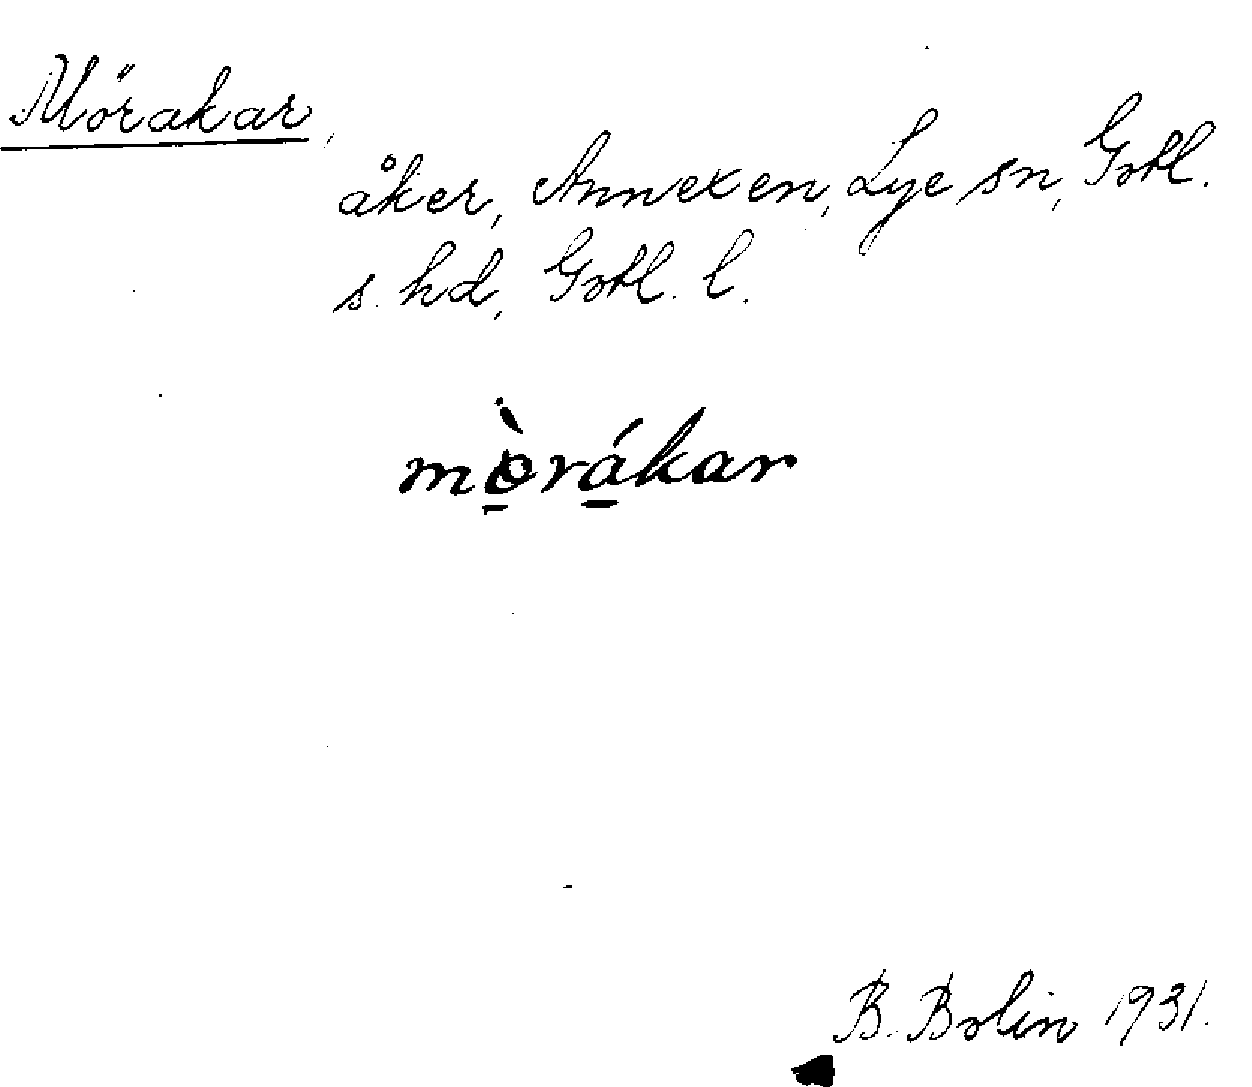 Mörakar,
åker, Annexen, Lye sn, Gotl.
s. hd, Gotl. l.
mò̱rá̱kar
B. Bolin 1931.